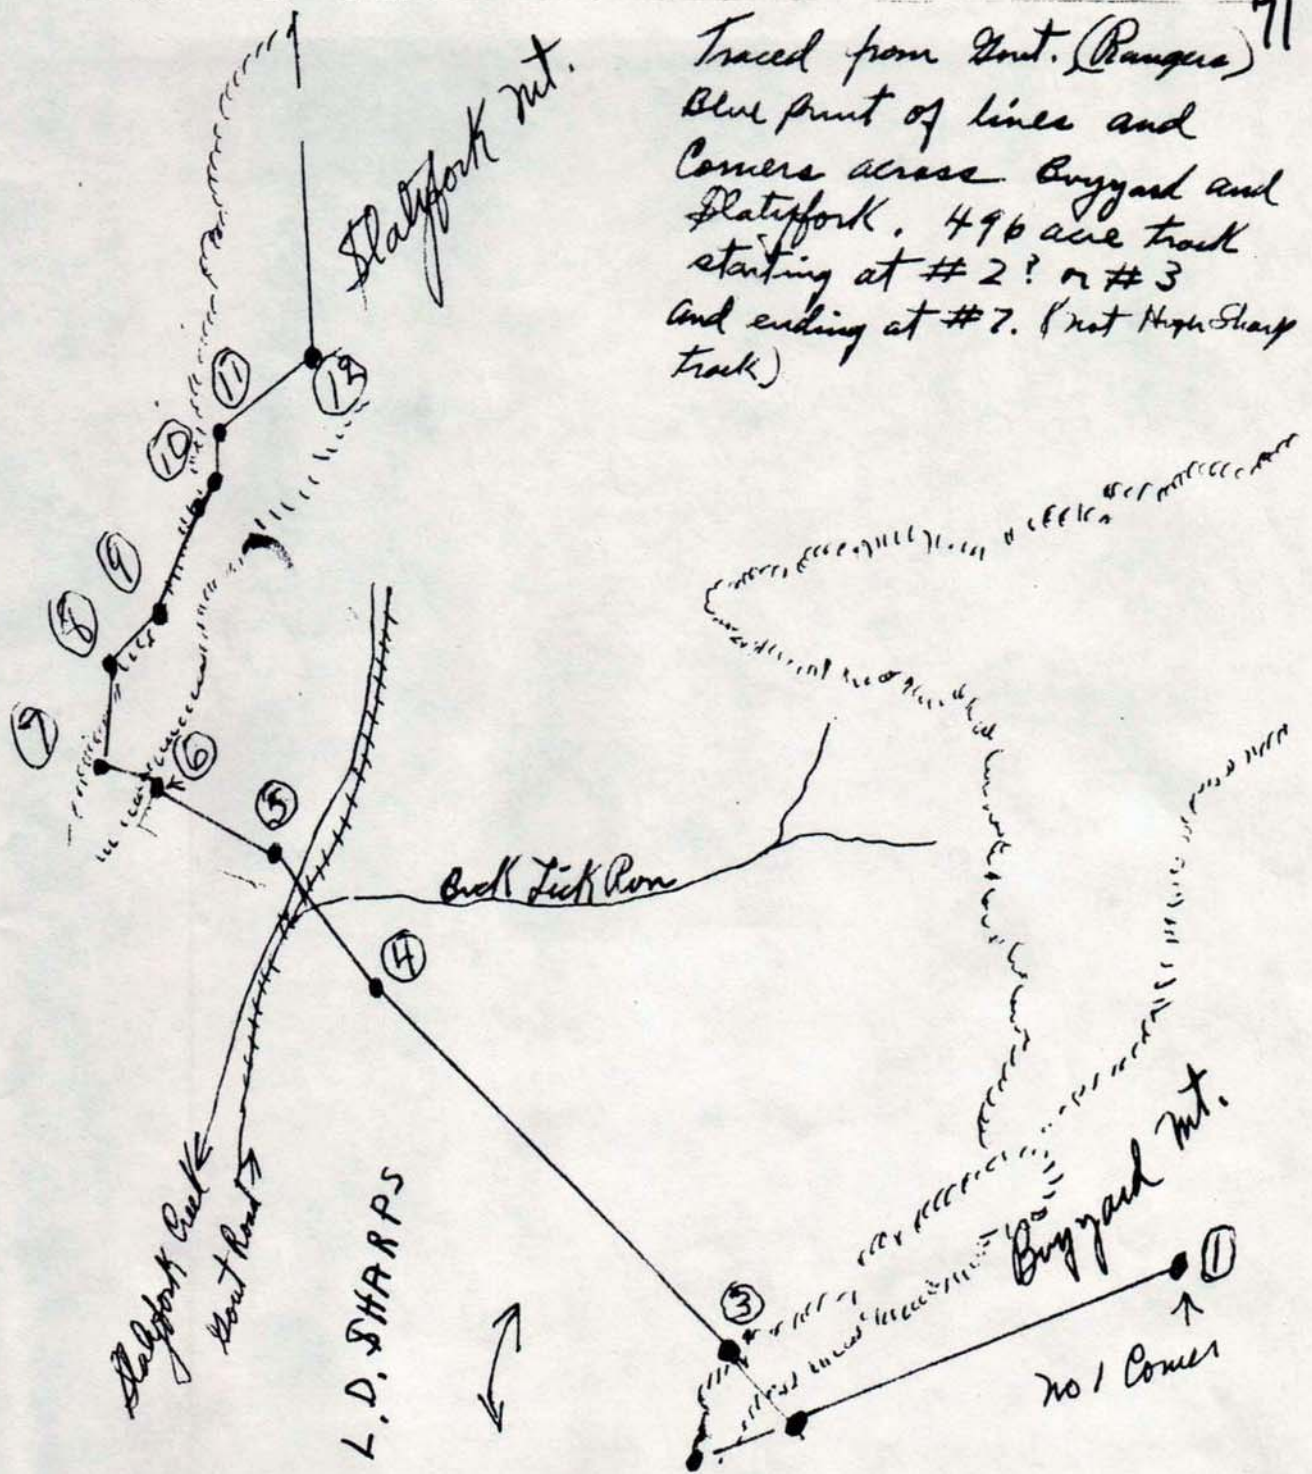 71
Traced from Gout. (Rangers)
Blue Print of lines and
Corners across Buzzard and
Slatyfork. 496 acre track
starting at # 2? or # 3
and ending at # 7. (not Hugh Sharp
track)
Slatyfork Mt.
11
12
10
9
8
7
6
5
Buck Lick Run
4
Slatyfork Creek
Gout Road
L. D. SHARPS
3
Buzzard Mt.
1
No 1 Corner